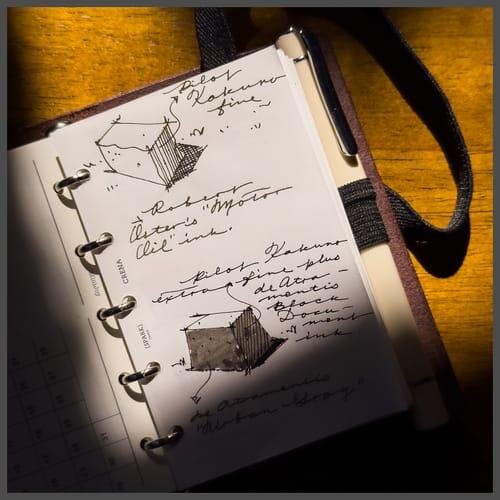 Pilot
Kakuno
fine
Robert
Oster's "Motor
Oil" ink.
Pilot Kakuno
extra fine plus
de Atra-
mentis
Black
Docu
ment
ink
de Atramentis
"Urban Gray"
CREMA